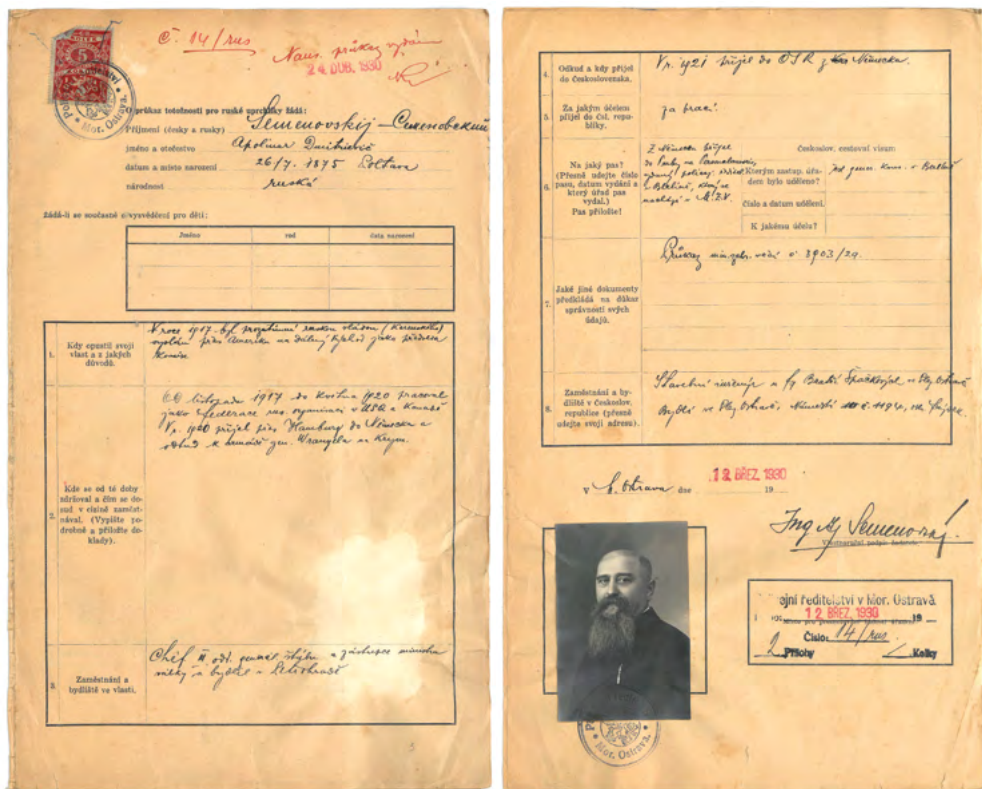 5
Č. 14/rus
Nans. průkaz vydán
24 DUB. 1930
Mor. Ostrava.
O průkaz totožnosti pro ruské uprchlíky žádá:
Příjmení (česky a rusky) Semenovskij - Семеновский
jméno a otečestvo Apolinar Dmitrievič
datum a místo narození 26/7. 1875 Poltava
národnost ruská
Žádá-li se současně o vysvědčení pro děti:
Jméno rod data narození
1. Kdy opustil svoji vlast a z jakých důvodů.
V roce 1917 byl prozatimní ruskou vládou (Kerenského)
vyslán přes Ameriku na dálný východ jako předseda
komise
2. Kde se od té doby zdržoval a čím se dosud v cizině zaměstnával. (Vypište podrobně a přiložte doklady).
Od listopadu 1917 do 1920 pracoval
jako federace rus. organisací v USA a Kanadě
V r. 1920 přijel přes Hamburg do Německa a
odtud k armádě gen. Wrangela na Krym.
3. Zaměstnání a bydliště ve vlasti.
Chef II odd. generál. štábu a zástupce ministra
války a bydlel v Petrohradě
4. Odkud a kdy přijel do Československa.
V r. 1921 přijel do ČSR z Německa.
5. Za jakým účelem přijel do čsl. republiky.
za prací.
6. Na jaký pas? (Přesně udejte číslo pasu, datum vydání a který úřad pas vydal.) Pas přiložte!
Z Německa přijel
do Prahy na
vydaný
v Berlíně, který se
nachází v M.Z.V.
Českoslov. cestovní visum:
Kterým zastup. úřadem bylo uděleno? gen. kons. v Berlíně
číslo a datum udělení.
K jakému účelu?
7. Jaké jiné dokumenty předkládá na důkaz správnosti svých údajů.
Průkaz min. č. 3903/29.
8. Zaměstnání a bydliště v Českoslov. republice (přesně udejte svoji adresu).
Stavební inženýr u fy Bratří v Slez. Ostravě
Bydlí ve Slez. Ostravě, Náměstí č. 1194,
v S. Ostrava dne 12 BŘEZ. 1930 19
Ing Ap Semenovskij
Vlastnoruční podpis žadatele.
ředitelství v Mor. Ostravě
12 BŘEZ. 1930 19
Číslo: 14/rus.
2 Přílohy Kolky
Mor. Ostrava.